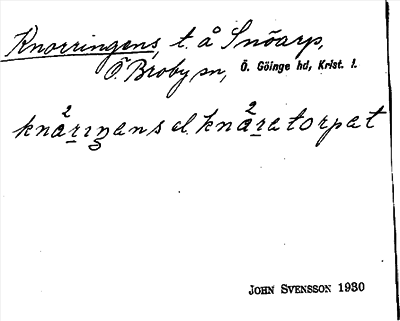 Knorringens, t. å Snöarp,
Ö. Broby sn, Ö. Göinge hd, Krist. l.
knå²rıŋens el. knå²ratorpat
JOHN SVENSSON 1930